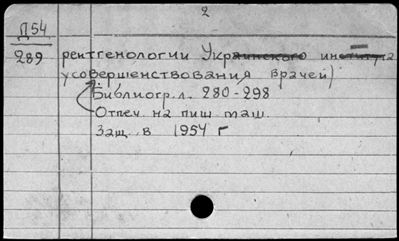 2
Д54
289
рентгенологии Украинского института
усовершенствования врачей)
Библиогр. л. 280-298
Отпеч. на пиш. маш.
Защ. в 1954 г